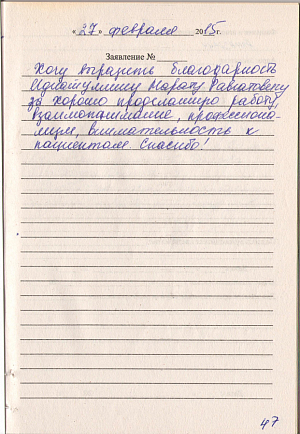 « 27 » февраля 2015г.
Заявление №
Хочу выразить благодарность
Марату Равилевичу
за хорошо проделанную работу,
взаимопонимание, профессиона-
лизм, внимательность к
пациентам. Спасибо!
47